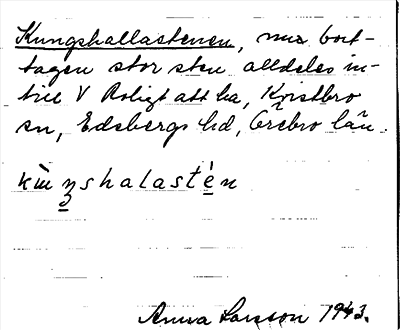 Kungshallastenen, nu bort-
tagen stor sten alldeles in-
till V Roligt att ha, Kvistbro
sn, Edsbergs hd, Örebro län.
kùŋshalastè̱n
Anna Larsson 1943.